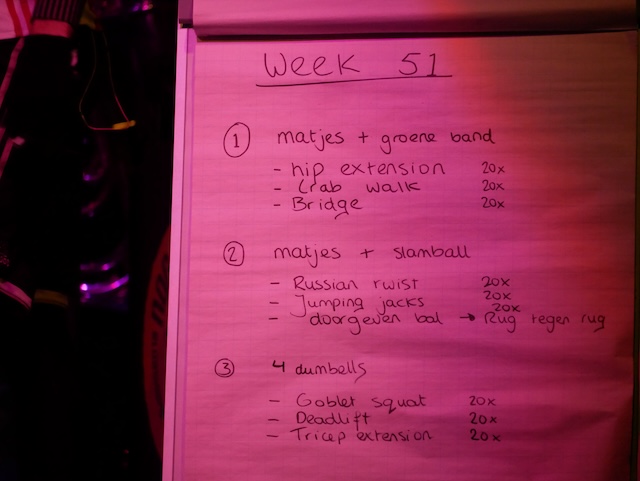 Week 51
1 matjes + groene band
- hip extension 20x
- Crab walk 20x
- Bridge 20x
2 matjes + slamball
- Russian twist 20x
- Jumping jacks 20x
- doorgeven bal 20x → Rug tegen rug
3 4 dumbells
- Goblet squat 20x
- Deadlift 20x
- Tricep extension 20x